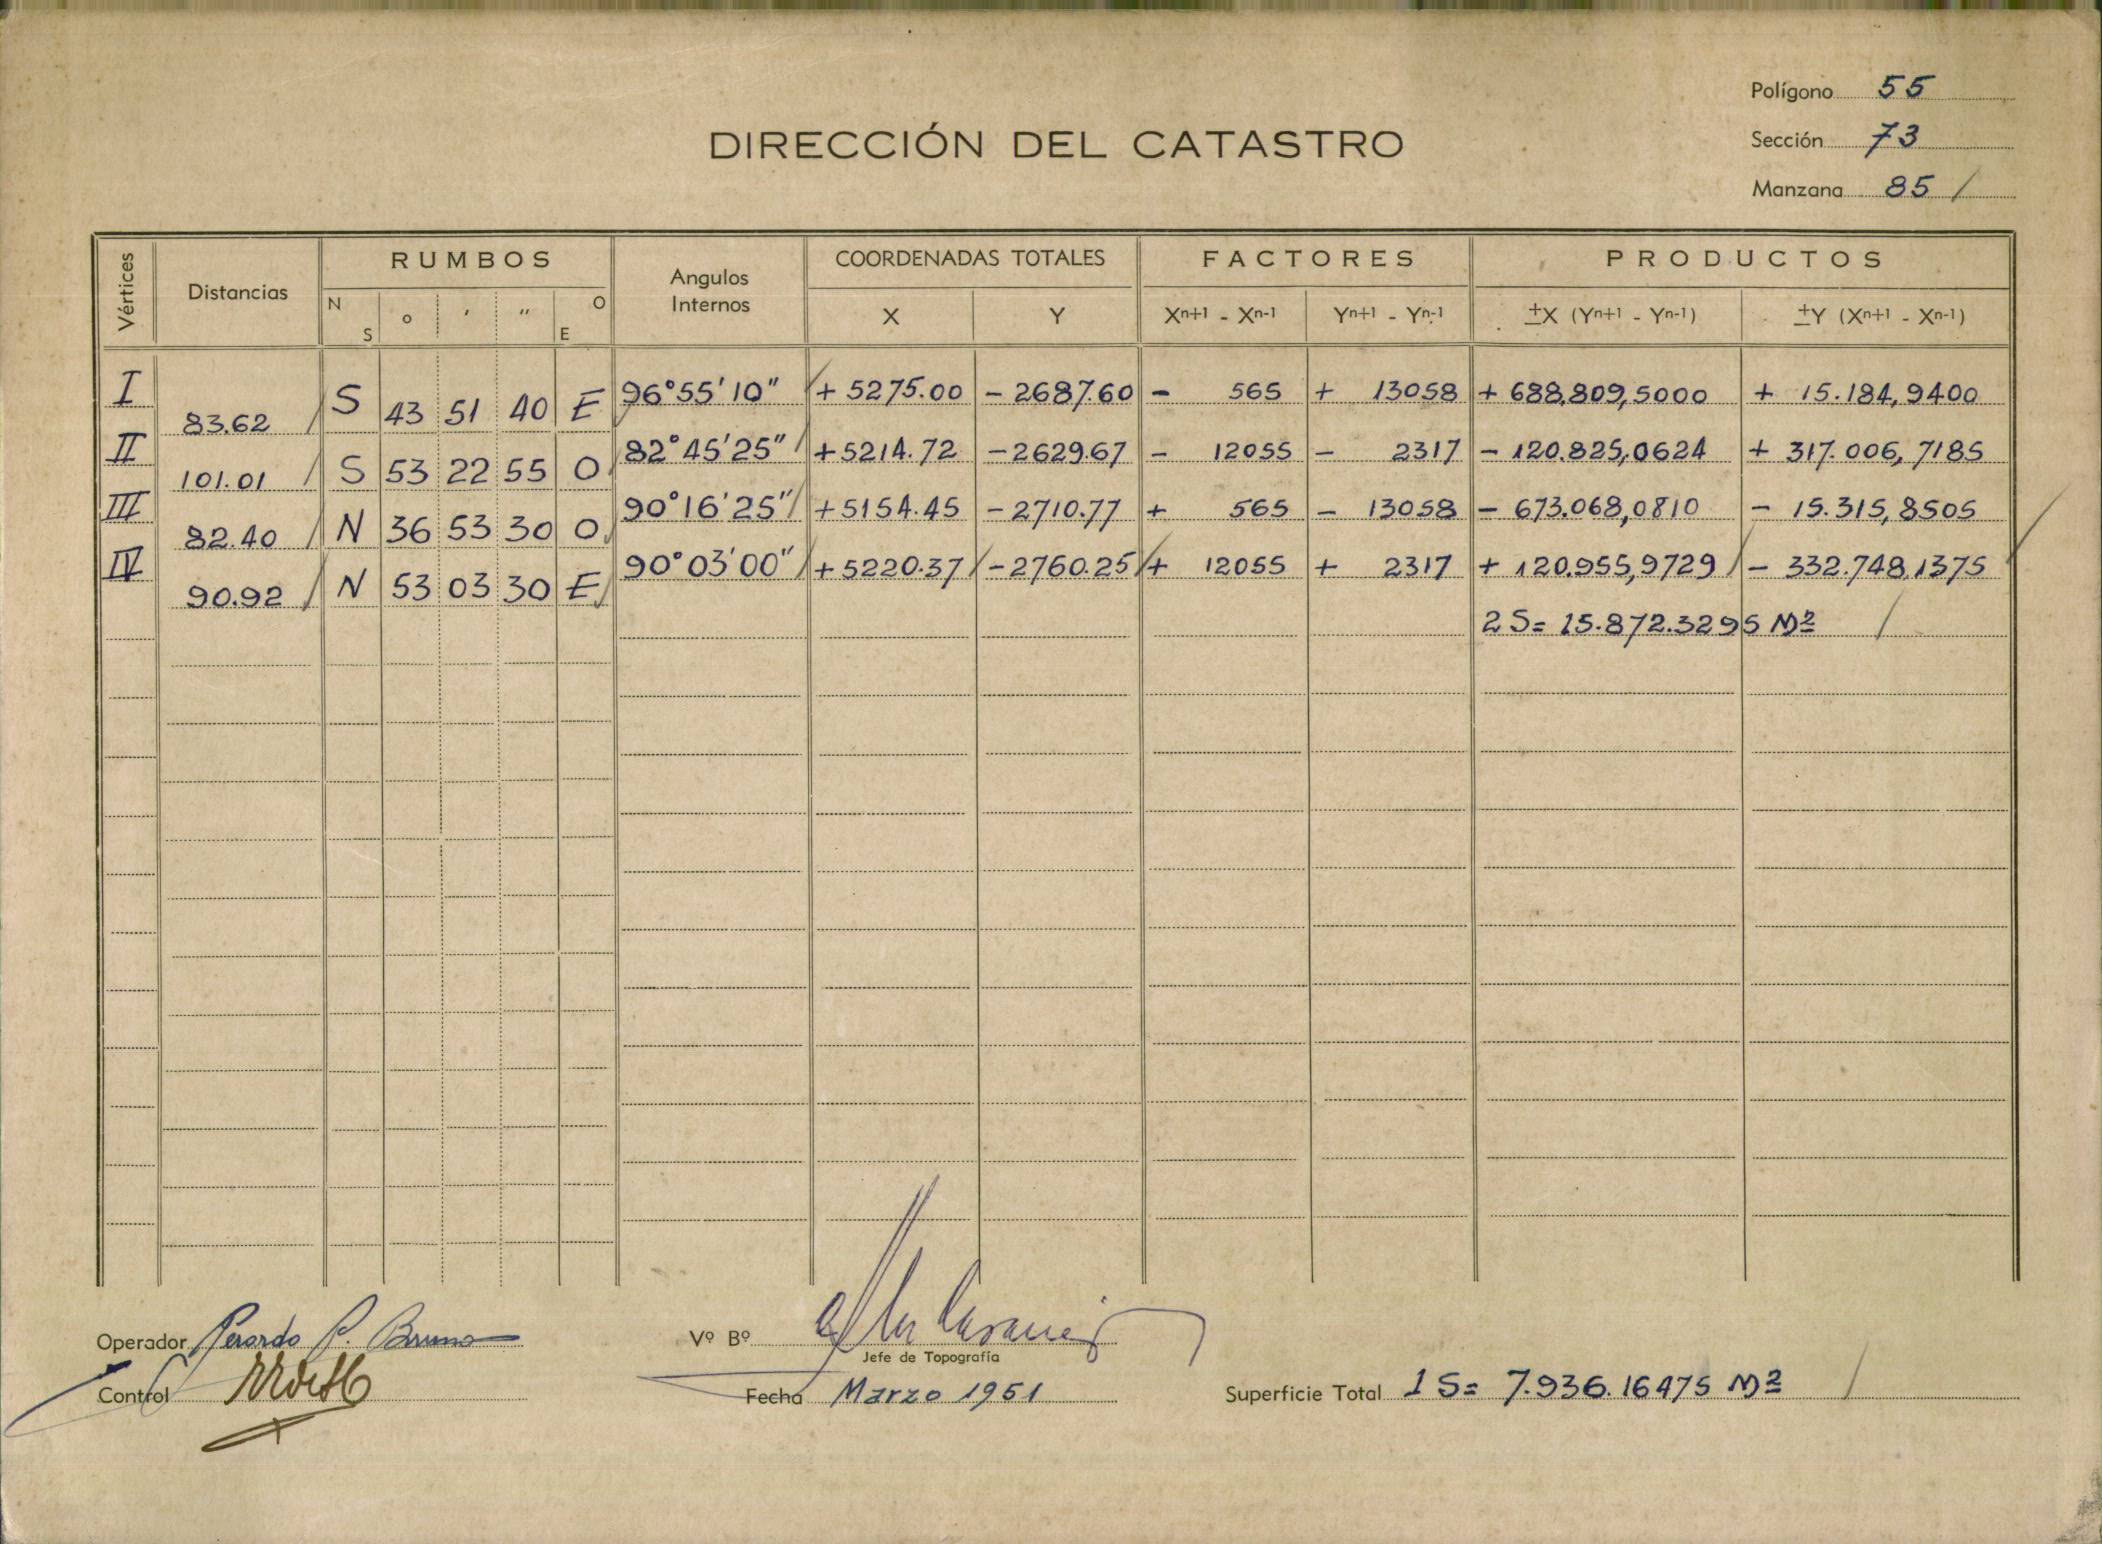 Polígono 55
DIRECCIÓN DEL CATASTRO
Sección 73
Manzana 85 /
Vértices Distancias RUMBOS Angulos Internos COORDENADAS TOTALES FACTORES PRODUCTOS
N S o ' '' O E X Y Xn+1 - Xn-1 Yn+1 - Yn-1 ±X (Yn+1 - Yn-1) ±Y (Xn+1 - Xn-1)
I 96°55'10" + 5275.00 - 2687.60 - 565 + 13058 + 688,809,5000 + 15.184,9400
83.62 S 43 51 40 E
II 82°45'25" + 5214.72 - 2629.67 - 12055 - 2317 - 120.825,0624 + 317.006,7185
101.01 S 53 22 55 O
III 90°16'25" + 5154.45 - 2710.77 + 565 - 13058 - 673.068,0810 - 15.315,8505
82.40 N 36 53 30 O
IV 90°03'00" + 5220.37 - 2760.25 + 12055 + 2317 + 120.955,9729 - 332.748,1375
90.92 N 53 03 30 E
2 S= 15.872.3295 M2
Operador P. Bruno
Vº Bº
Jefe de Topografía
Control
Fecha Marzo 1951
Superficie Total 1 S= 7.936.16475 M2